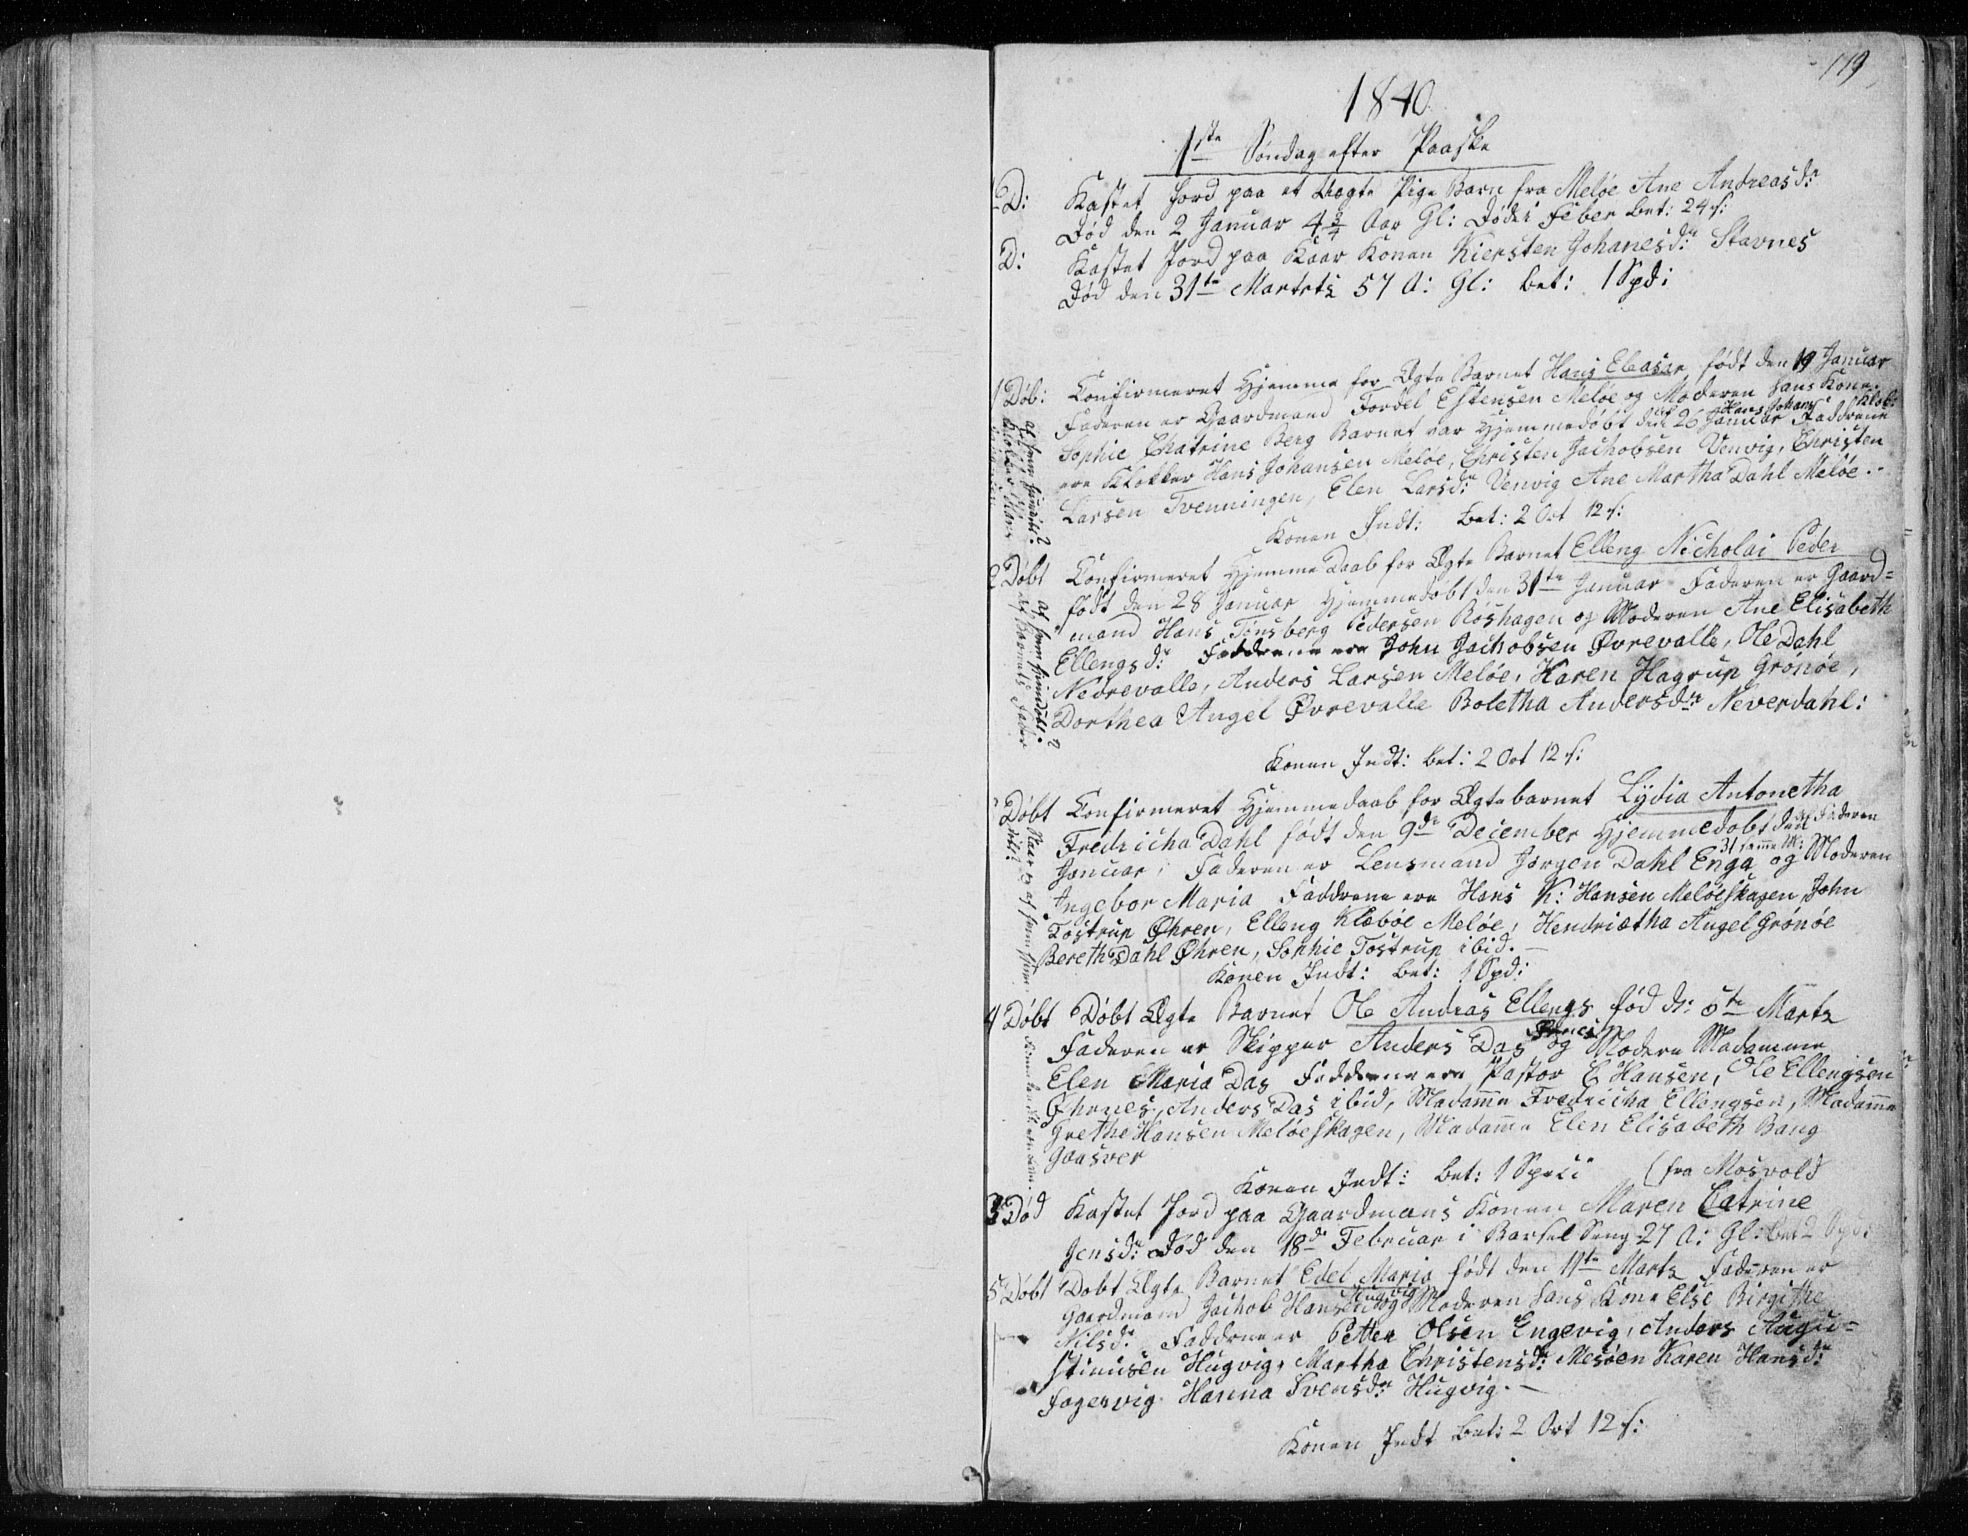 119
1840
1ste Søndag efter Paaske
D: Kastet Jord paa et Uægte Pige Barn fra Meløe Ane Andreasdr
Død den 2 Januar 4 3/4 Aar Gl: Død i Feber bet: 24 s:
D: Kastet Jord paa Kaar Konen Kiersten Johanesdr: Stavnes
Død den 31te Martz 57 A: Gl: bet: 1 Spd:
1 Døb: Confirmeret Hjemme for Ægte Barnet Hans Eleasar født den 19 Januar
Faderen er Gaardmand Tordel Estensen Meløe og Moderen hans Kone
Sophie Chatrine Berg Barnet var Hjemmedøbt den 26 Januar Faddrene
Hans Johans: Klok:
ere Klokker Hans Johansen Meløe, Christen Jachobsen Venvig, Christen
Larsen Tvenningen, Elen Larsdr: Venvig Ane Martha Dahl Meløe.
Konen Indt: bet: 2 Ort 12 s:
2 Døbt Confirmeret Hjemme Daab for Ægte Barnet Elleng Nicholai Peder
født den 28 Januar Hjemmedøbt den 31te Januar Faderen er Gaard=
mand Hans Tønsberg Pedersen Røshagen og Moderen Ane Elisabeth
Ellengsdr: Faddrene ere John Jachobsen Øvrevalle, Ole Dahl
Nedrevalle, Anders Larsen Meløe, Karen Hagrup Grønøe,
Dorthea Angel Øvrevalle Boletha Andersdr: Neverdahl:
Konen Indt: bet: 2 Ort 12 s:
Døbt Confirmeret Hjemmedaab for Ægtebarnet Lydia Antonetha
Fredricha Dahl født den 9de December Hjemmedøbt den af Faderen
31 samme M:
Januar, Faderen er Lensmand Jørgen Dahl Enga og Moderen
Ingebor Maria Faddrene ere Hans K: Hansen Meløeskagen, John
Tostrup Øhren, Elleng Klæbøe Meløe, Hendrietha Angel Grønøe
Bereth Dahl Øhren, Sophie Tostrup ibid.
Konen Indt: bet: 1 Spd:
4 Døbt Døbt Ægte Barnet Ole Andreas Ellengs fød d: 5te Martz
Faderen er Skipper Anders Das og Modern Madamme
Elen Maria Das Faddrene ere Pastor C Hansen, Ole Ellengsen
Øhrnes, Anders Das ibid, Madame Fredricha Ellengsen, Madame
Grethe Hansen Meløeskagen, Madame Elen Elisabeth Bang
Gaasver
Konen Indt: bet: 1 Speci (fra Mosvold
3 Død Kastet Jord paa Gaardmans Konen Maren Catrine
Jensdr: Død den 18de Februar i Barsel Seng 27 A: Gl: bet
5 Døbt Døbt Ægte Barnet Edel Maria født den 11te Martz Faderen er
Hugvig
Gaardmand Jachob Hansen og Moderen hans Kone Else Birgithe
Nilsdr. Faddrene er Petter Olsen Engevig, Anders Augu=
stinusen Hugvig, Martha Christensdr: Mesøen Karen Hansdr:
Fagervig Hanna Svensdr: Hugvig.
Konen Indt bet: 2 Ort 12 s: